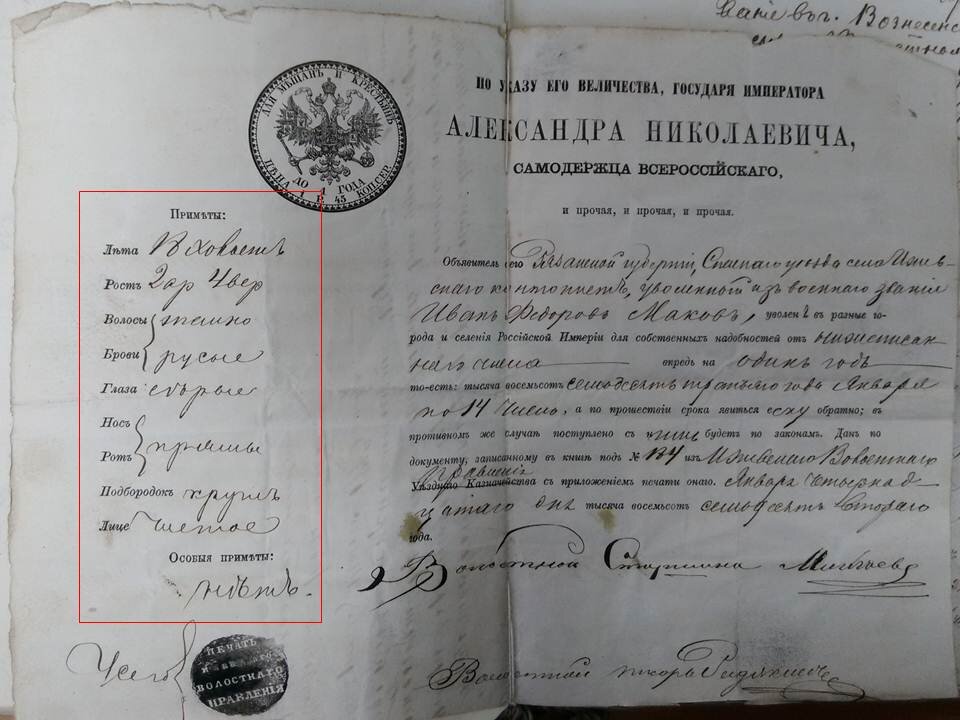 Ваніе въ г. Вознесенс
ДЛЯ МѢЩАНЪ И КРЕСТЬЯНЪ
ДО 1 ГОДА
ЦѢНА 1 Р. 45 КОП. СЕР.
ПО УКАЗУ ЕГО ВЕЛИЧЕСТВА, ГОСУДАРЯ ИМПЕРАТОРА
АЛЕКСАНДРА НИКОЛАЕВИЧА,
САМОДЕРЖЦА ВСЕРОССІЙСКАГО,
и прочая, и прочая, и прочая.
Примѣты:
Лѣта
Ростъ 2 ар 4 вер
Волосы темно
Брови русые
Глаза сѣрые
Носъ
Ротъ прямы
Подбородокъ кругл
Лице чистое
Особыя примѣты:
нѣтъ.
Объявитель сего Рязанской губерніи, Спаскаго уѣзда села Ижев-
скаго кантонистъ, уволенный изъ военнаго званія
Иванъ Федоровъ Маковъ, уволенъ въ разные го-
рода и селенія Россійской Имперіи для собственныхъ надобностей от нижеписан
наго числа впредь на одинъ годъ
то-есть: тысяча восемьсотъ семьдесятъ третьяго года Января
по 14 число, а по прошествіи срока явиться ему обратно; въ
противномъ же случаѣ поступлено съ нимъ будетъ по законамъ. Данъ по
документу, записанному въ книгѣ подъ № 134 изъ Ижевскаго Волостнаго
Правленія
Уѣзднаго Казначейства съ приложеніемъ печати онаго. Января четырнад
цатаго дня тысяча восемьсотъ семьдесятъ втораго
года.
Волостной Старшина
Волостной писарь
ПЕЧАТЬ
ВОЛОСТНАГО
ПРАВЛЕНІЯ